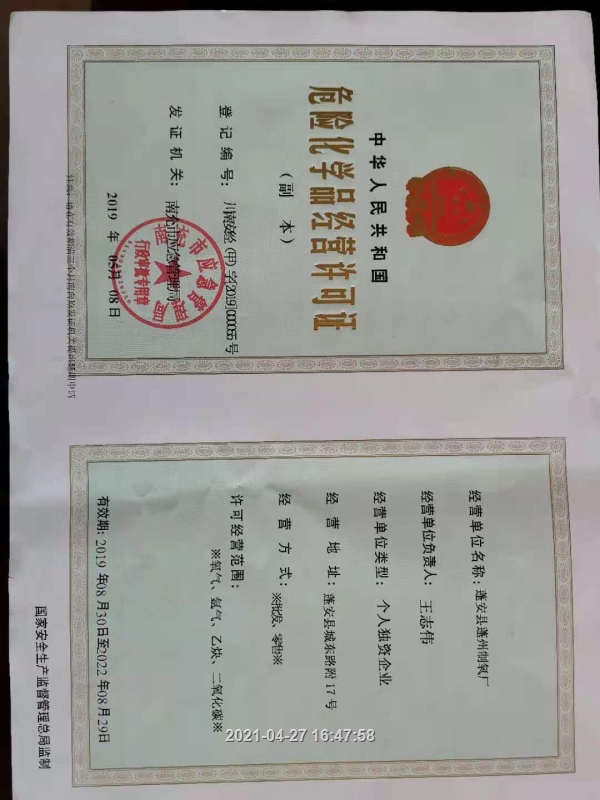 中华人民共和国
危险化学品经营许可证
(副 本)
登 记 编 号: 川南安经(甲)字[2019]000055号
发 证 机 关: 南充市应急管理局
2019 年 05月 08 日
行政审批专用章
注意:请在有效期前三个月前向原发证机关提出延期申请
经营单位名称: 蓬安县蓬州制氧厂
经营单位负责人: 王志伟
经营单位类型: 个人独资企业
经 营 地 址: 蓬安县城东路附17号
经 营 方 式: ※批发、零售※
许可经营范围:
※氧气、氩气、乙炔、二氧化碳※
有效期: 2019年08月30日至2022年08月29日
国家安全生产监督管理总局监制
2021-04-27 16:47:58